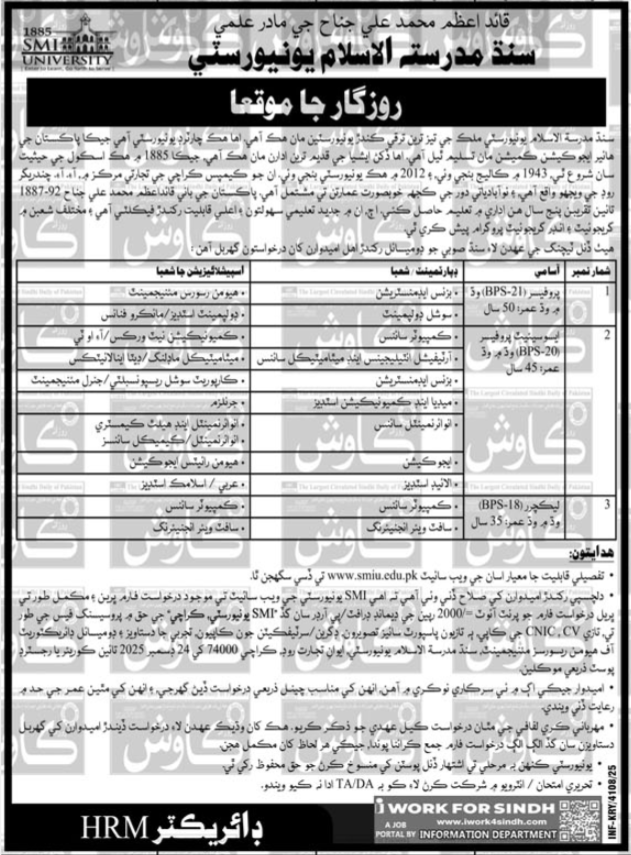 1885
SMI
UNIVERSITY
قائد اعظم محمد علي جناح جي مادر علمي
سنڌ مدرسته الاسلام يونيورسٽي
روزگار جا موقعا
سنڌ مدرسة الاسلام يونيورسٽي ملڪ جي تيز ترين ترقي ڪندڙ يونيورسٽين مان هڪ آهي. اها هڪ چارٽرڊ يونيورسٽي آهي جيڪا پاڪستان جي
هائير ايجوڪيشن ڪميشن مان تسليم ٿيل آهي. اها ڏکڻ ايشيا جي قديم ترين ادارن مان هڪ آهي، جيڪا 1885 ۾ هڪ اسڪول جي حيثيت
سان شروع ٿي، 1943 ۾ ڪاليج بنجي وئي، ۽ 2012 ۾ هڪ يونيورسٽي بنجي وئي. ان جو ڪيمپس ڪراچي جي تجارتي مرڪز ۾، آء. آء. چندريگر
روڊ جي ويجهو واقع آهي، ۽ نوآبادياتي دور جي ڪجهه خوبصورت عمارتن تي مشتمل آهي. پاڪستان جي باني قائداعظم محمد علي جناح 92-1887
تائين تقريبن پنج سال هن اداري ۾ تعليم حاصل ڪئي. اڄ، ان ۾ جديد تعليمي سهولتون ۽ اعليٰ قابليت رکندڙ فيڪلٽي آهي، ۽ مختلف شعبن ۾
گريجوئيٽ ۽ انڊر گريجوئيٽ پروگرام پيش ڪري ٿي.
هيٺ ڏنل ٽيچنگ جي عهدن لاءِ سنڌ صوبي جو ڊوميسائل رکندڙ اهل اميدوارن کان درخواستون گهربل آهن:
شمار نمبر آسامي ڊپارٽمينٽ/ شعبا اسپيشلائيزيشن جا شعبا
1 پروفيسر (BPS-21) وڌ ۾ وڌ عمر: 50 سال
• بزنس ايڊمنسٽريشن • هيومن رسورس مئنيجمينٽ
• سوشل ڊولپمينٽ • ڊولپمينٽ اسٽڊيز/مائڪرو فنانس
2 ايسوسيئيٽ پروفيسر (BPS-20) وڌ ۾ وڌ عمر: 45 سال
• ڪمپيوٽر سائنس • ڪميونيڪيشن نيٽ ورڪس/ آء او ٽي
• آرٽيفشل انٽيليجينس اينڊ ميٿاميٽيڪل سائنس • ميٿاميٽيڪل ماڊلنگ/ ڊيٽا اينالائيٽڪس
• بزنس ايڊمنسٽريشن • ڪارپوريٽ سوشل ريسپونسبلٽي/ جنرل مئنيجمينٽ
• ميڊيا اينڊ ڪميونيڪيشن اسٽڊيز • جرنلزم
• انوائرنمينٽل سائنس • انوائرنمينٽل اينڊ هيلٿ ڪيمسٽري
• انوائرنمينٽل/ ڪيميڪل سائنسز
• ايجوڪيشن • هيومن رائيٽس ايجوڪيشن
• الائيڊ اسٽڊيز • عربي/ اسلامڪ اسٽڊيز
3 ليڪچرر (BPS-18) وڌ ۾ وڌ عمر: 35 سال
• ڪمپيوٽر سائنس • ڪمپيوٽر سائنس
• سافٽ ويئر انجنيئرنگ • سافٽ ويئر انجنيئرنگ
هدايتون:
• تفصيلي قابليت جا معيار اسان جي ويب سائيٽ www.smiu.edu.pk تي ڏسي سگهجن ٿا.
• دلچسپي رکندڙ اميدوارن کي صلاح ڏني وڃي ٿي ته اهي SMI يونيورسٽي جي ويب سائيٽ تي موجود درخواست فارم ڀرين ۽ مڪمل طور تي
ڀريل درخواست فارم جو پرنٽ آئوٽ =/2000 رپين جي ڊيمانڊ ڊرافٽ/پي آرڊر سان گڏ "SMI يونيورسٽي، ڪراچي" جي حق ۾ پروسيسنگ فيس جي طور
تي، تازي CNIC ،CV جي ڪاپي، ٻه تازيون پاسپورٽ سائيز تصويرون، ڊگرين/سرٽيفڪيٽن جون ڪاپيون، تجربي جا دستاويز ۽ ڊوميسائل ڊائريڪٽوريٽ
آف هيومن ريسورسز مئنيجمينٽ، سنڌ مدرسة الاسلام يونيورسٽي، ايوان تجارت روڊ، ڪراچي 74000 کي 24 ڊسمبر 2025 تائين ڪوريئر يا رجسٽرڊ
پوسٽ ذريعي موڪلين.
• اميدوار جيڪي اڳ ۾ ئي سرڪاري نوڪري ۾ آهن، انهن کي مناسب چينل ذريعي درخواست ڏيڻ گهرجي، ۽ انهن کي مٿين عمر جي حد ۾
رعايت ڏني ويندي.
• مهرباني ڪري لفافي جي مٿان درخواست ڪيل عهدي جو ذڪر ڪريو. هڪ کان وڌيڪ عهدن لاءِ درخواست ڏيندڙ اميدوارن کي گهربل
دستاويزن سان گڏ الڳ الڳ درخواست فارم جمع ڪرائڻا پوندا، جيڪي هر لحاظ کان مڪمل هجن.
• يونيورسٽي ڪنهن به مرحلي تي اشتهار ڏنل پوسٽن کي منسوخ ڪرڻ جو حق محفوظ رکي ٿي.
• تحريري امتحان/ انٽرويو ۾ شرڪت ڪرڻ لاءِ ڪو به TA/DA ادا نه ڪيو ويندو.
ڊائريڪٽر HRM
I WORK FOR SINDH
www.iwork4sindh.com
A JOB PORTAL BY INFORMATION DEPARTMENT
INF-KRY/4108/25